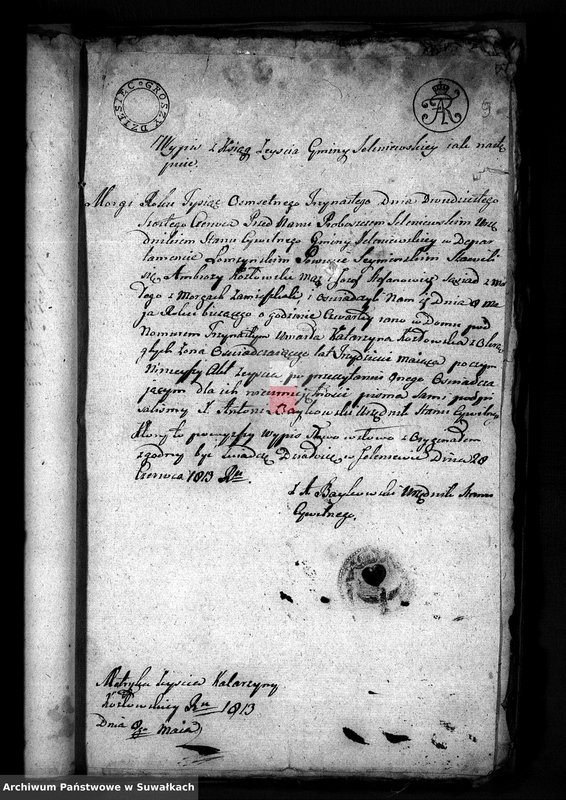 DZIESIĘC GROSZY
5
Wypis z Ksiąg Zeyscia Gminy Jeleniewskiey jak nastę
puie.
Morgi Roku Tysiąc Osmsetnego Trzynastego Dnia Dwudziestego
Szostego Czerwca Przed Nami Proboszczem Jeleniewskim Urzę
dnikiem Stanu Cywilnego Gminy Jeleniewskiey w Depar
tamencie Łomżynskim Powiecie Seynenskim Stawili
się Ambrozy Kozłowski mąz Jozef Stefanowicz sąsiad z
w Morgach Zamieszkali i oswiadczyli Nam iż dnia 8 Ma
ja Roku biezącego o godzinie Czwartey rano w Domu pod
Numerem Trzynastym Umarła Katarzyna Kozłowska
Zona Oswiadczaiącego lat Trzydzieści maiąca poczym
Ninieyszy Akt Zeyscia po przeczytaniu Onego Oswiadcza
jącym dla ich nieumiejętnosci pisma Sami podpi
salismy X. Antoni Baykowski Urzędnik Stanu Cywilnego
Który to powyższy wypis Słowo w słowo z Oryginałem
zgodny być swiadczę Działo się w Jeleniewie Dnia 28
Czerwca 1813 Ru
X A Baykowski Urzędnik Stanu
Cywilnego.
Metryka Zeyscia Katarzyny
Kozłowskiey Ru 1813
Dnia 8 Maia
Archiwum Państwowe w Suwałkach